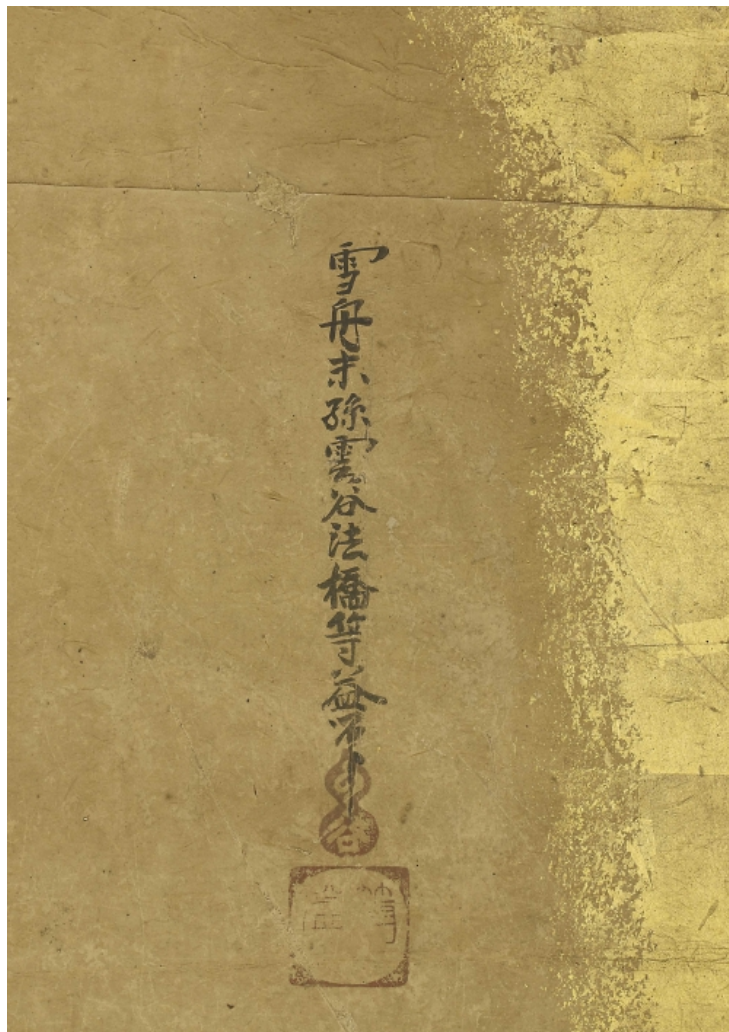 雪舟末孫雲谷法橋等益筆
谷
等益